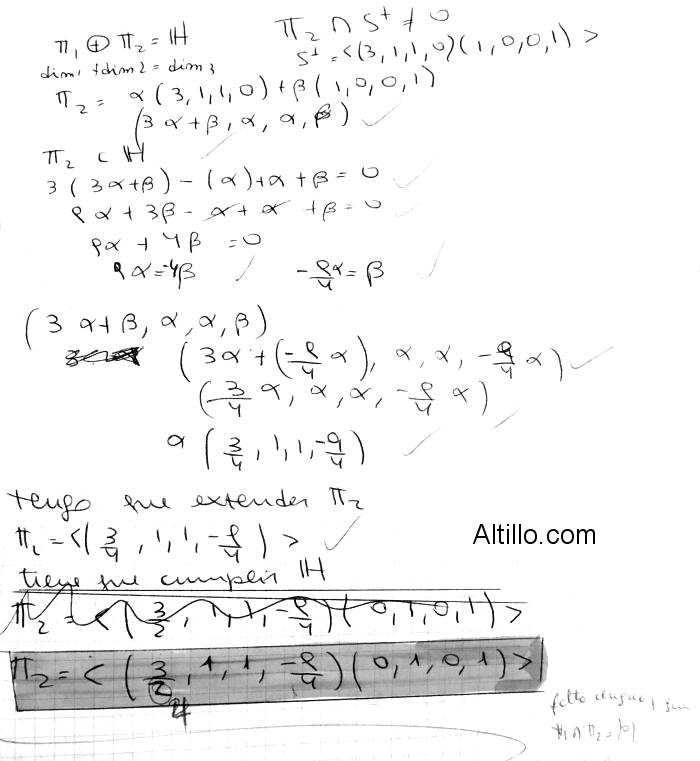 π₁ ⊕ π₂ = H
dim1 + dim2 = dim3
π₂ ∩ S⊥ ≠ 0
S⊥ = <(3,1,1,0)(1,0,0,1)>
π₂ = α(3,1,1,0) + β(1,0,0,1)
(3α+β, α, α, β)
π₂ ⊂ H
3(3α+β) - (α) + α + β = 0
9α + 3β - α + α + β = 0
9α + 4β = 0
9α = -4β
-9/4 α = β
(3α+β, α, α, β)
(3α + (-9/4 α), α, α, -9/4 α)
(3/4 α, α, α, -9/4 α)
α (3/4, 1, 1, -9/4)
tengo que extender π₂
π₂ = <(3/4, 1, 1, -9/4)>
Altillo.com
tiene que cumplir H
π₂ = <(3/2, 1, 1, -9/4)(0,1,0,1)>
π₂ = <(3/2, 1, 1, -9/4)(0,1,0,1)>
4
π₁ ∩ π₂ = {0}